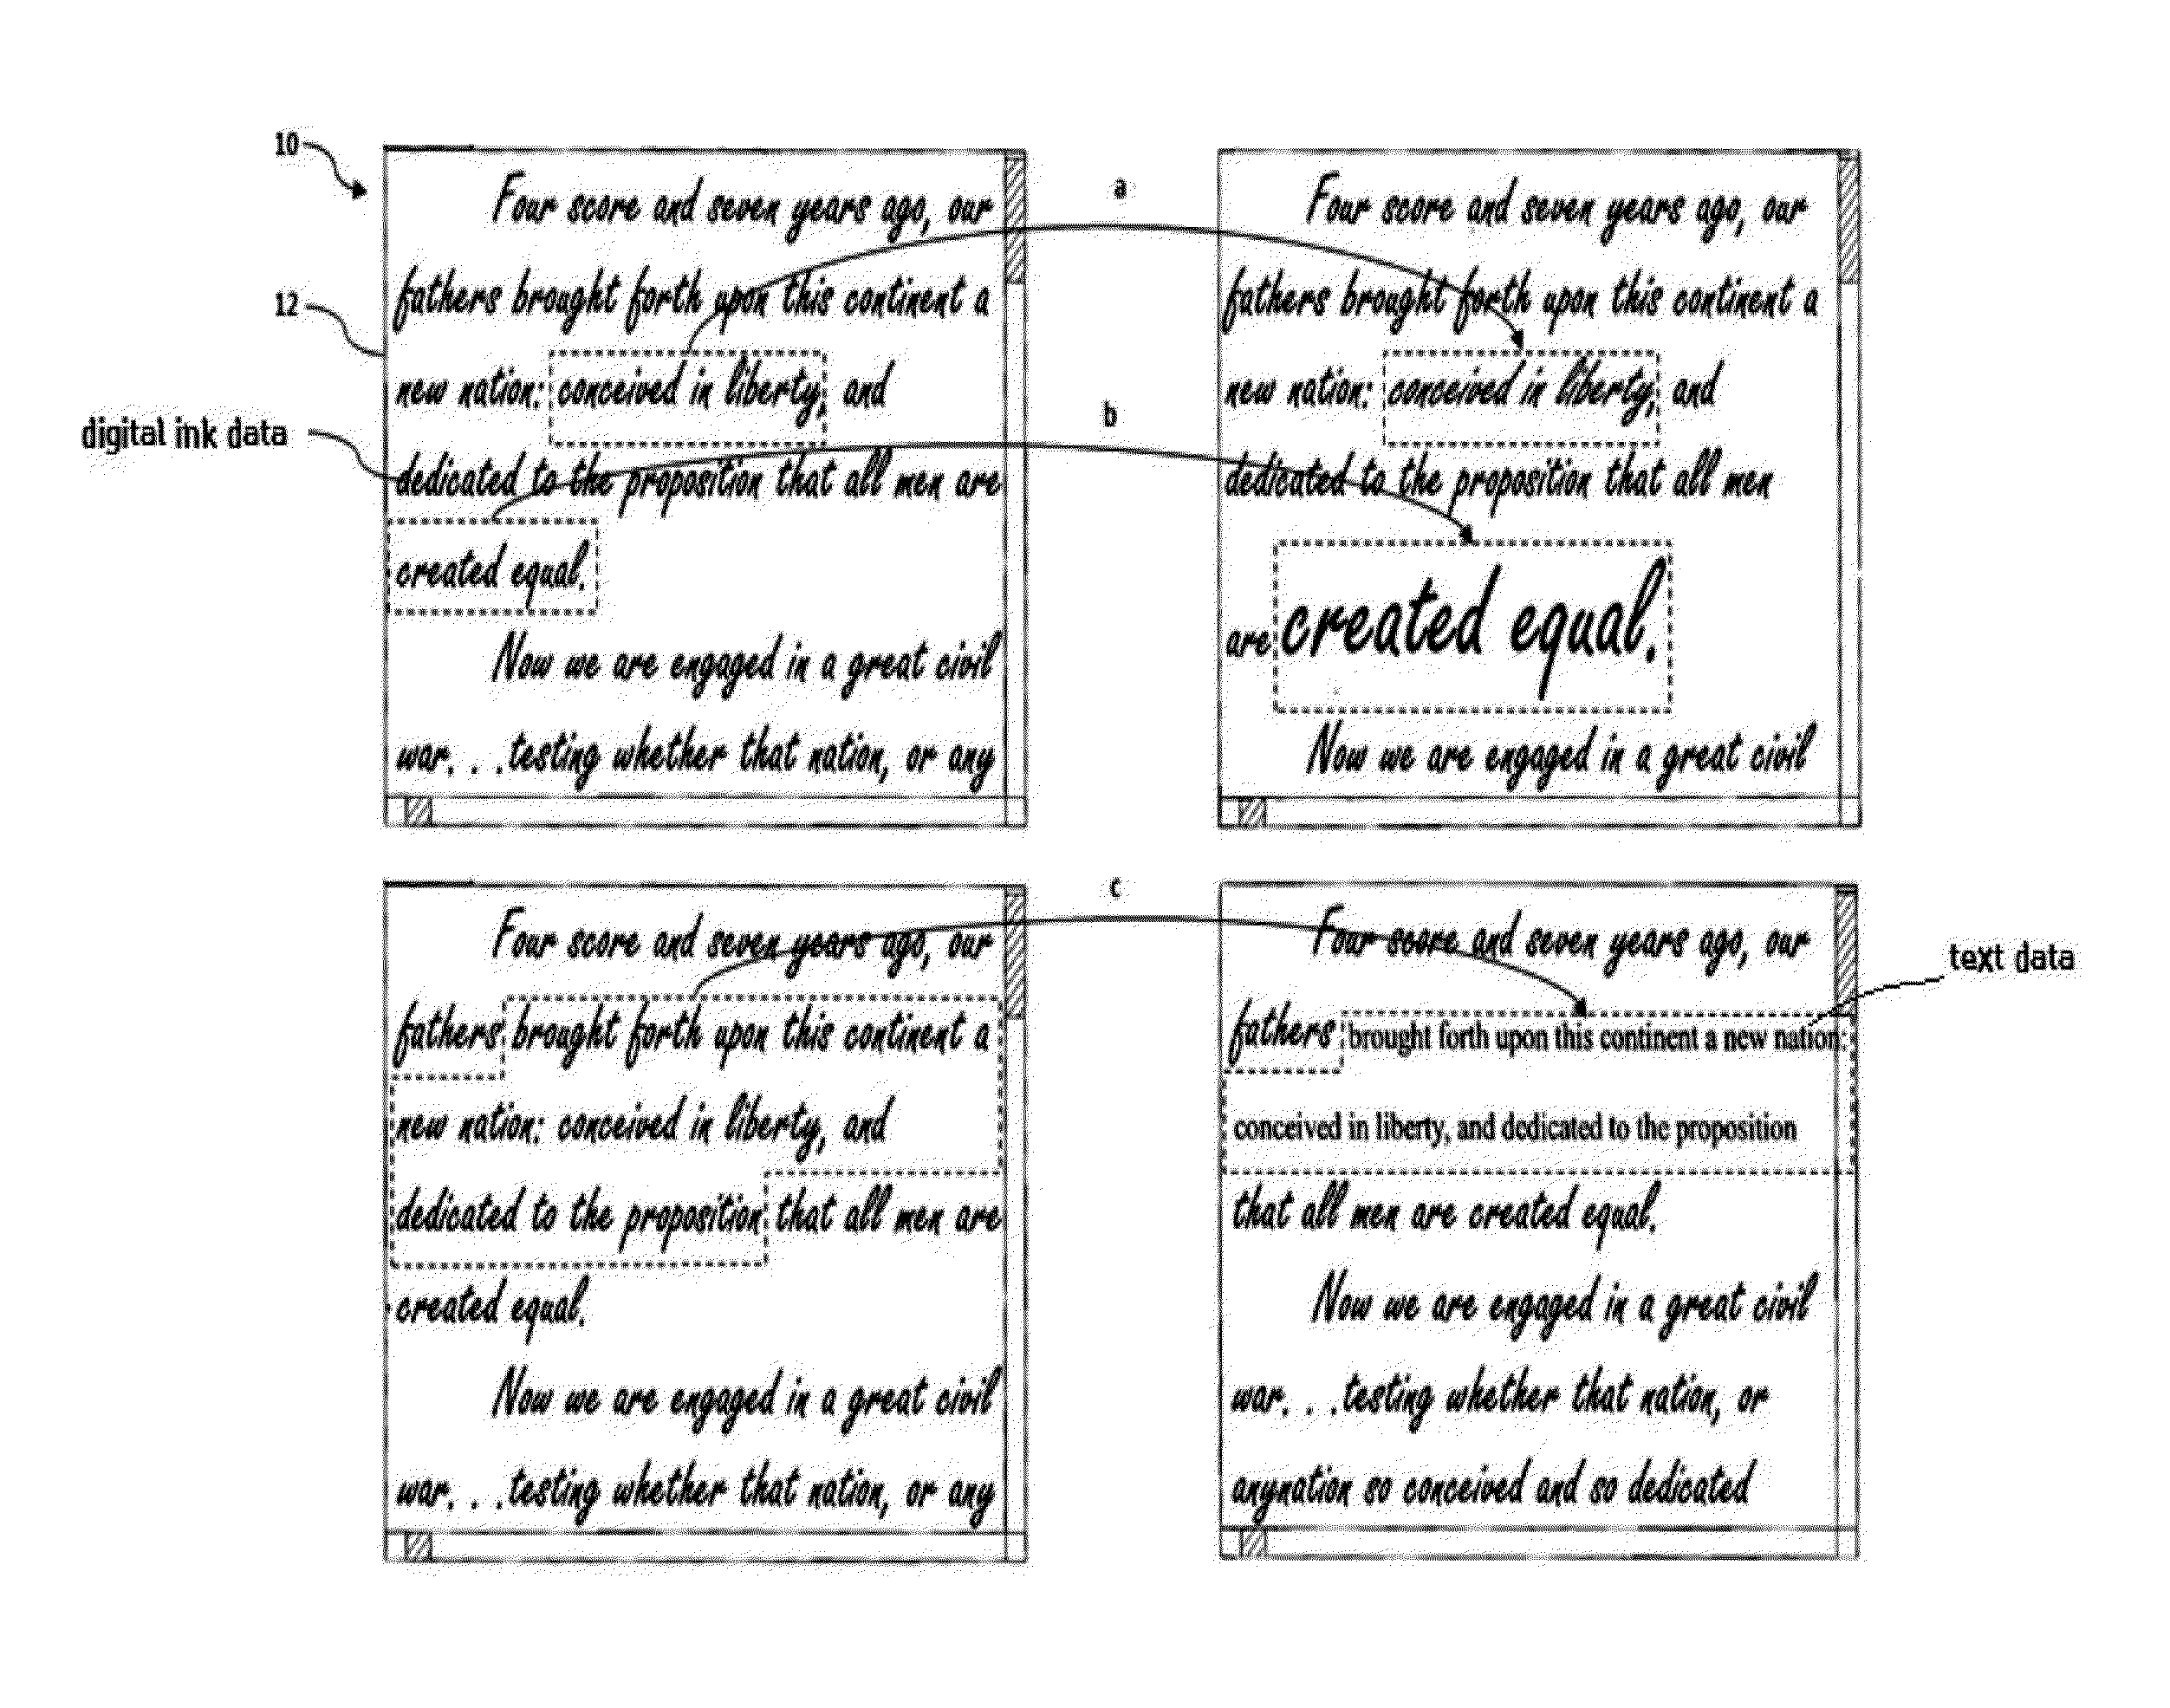 10
12
digital ink data
Four score and seven years ago, our
fathers brought forth upon this continent a
new nation: conceived in liberty, and
dedicated to the proposition that all men are
created equal.
Now we are engaged in a great civil
war. . .testing whether that nation, or any
a
b
Four score and seven years ago, our
fathers brought forth upon this continent a
new nation: conceived in liberty, and
dedicated to the proposition that all men
are created equal.
Now we are engaged in a great civil
Four score and seven years ago, our
fathers brought forth upon this continent a
new nation: conceived in liberty, and
dedicated to the proposition that all men are
created equal.
Now we are engaged in a great civil
war. . .testing whether that nation, or any
c
Four score and seven years ago, our
fathers brought forth upon this continent a new nation:
conceived in liberty, and dedicated to the proposition
that all men are created equal.
Now we are engaged in a great civil
war. . .testing whether that nation, or
anynation so conceived and so dedicated
text data